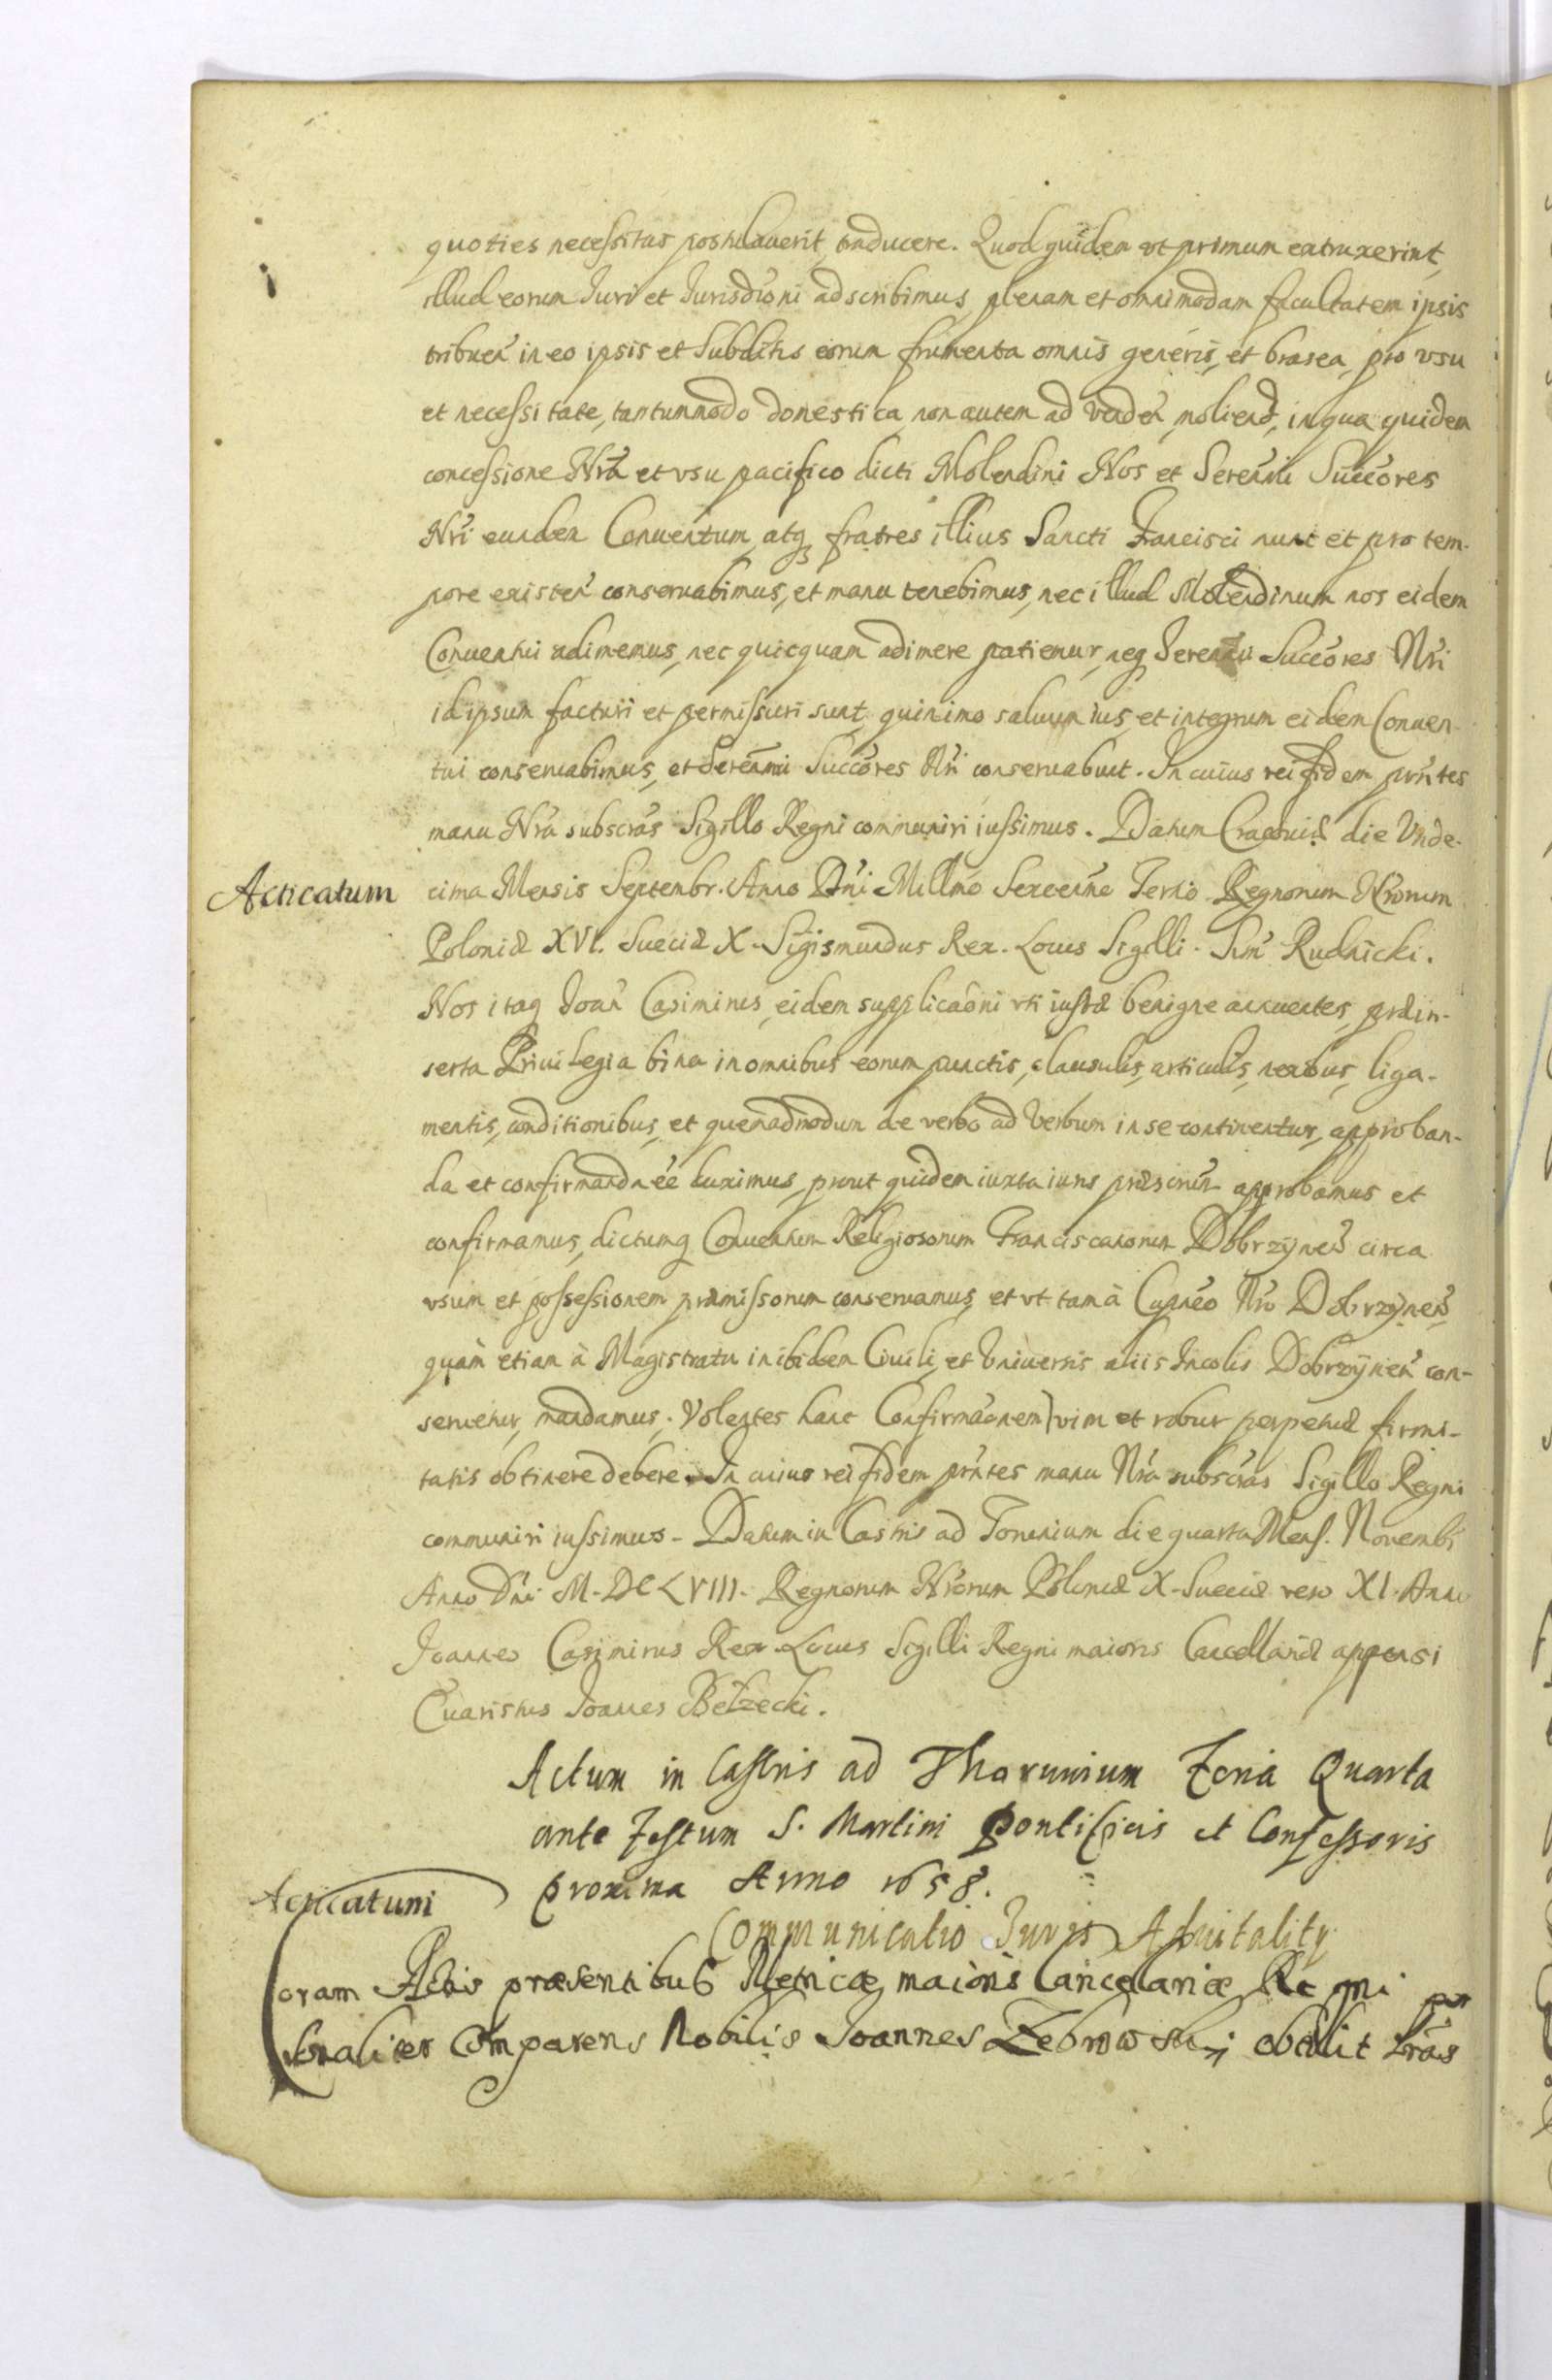 quoties necessitas postulauerit, traducere. Quod quidem vt primum extruxerint,
illud eorum Juri et Jurisdioni adscribimus, plenam et omnimodam facultatem ipsis
tribuen in eo ipsis et Subditis eorum frumenta omnis generis, et brasea, pro vsu
et necessitate, tantummodo domestica, non autem ad venden, moliend, in qua quidem
concessione Nra et vsu pacifico dicti Molendini Nos et Serenmi Succores
Nri eundem Conuentum, atq fratres illius Sancti Francisci nunc et pro tem-
pore existen conseruabimus, et manu tenebimus, nec illud Molendinum nos eidem
Conuentui adimemus, nec quicquam adimere patiemur, neq Serenmi Succores Nri
id ipsum facturi et permissuri sunt, quinimo saluum ius, et integrum eidem Conuen-
tui conseruabimus, et Serenmi Succores Nri conseruabunt. In cuius rei fidem prntes
manu Nra subscras Sigillo Regni communiri iussimus. Datum Cracouiæ die Vnde-
Acticatum
cima Mensis Septembr. Anno Dni Millmo Sexcenno Tertio Regnorum Nrorum
Poloniæ XVI. Sueciæ X. Sigismundus Rex. Locus Sigilli. Sim Rudnicki.
Nos itaq Joan Casimirus, eidem supplicaoni vti iustæ benigne annuentes, præin-
serta Priuilegia bina in omnibus eorum punctis, clausulis, articulis, nexibus, liga-
mentis, conditionibus, et quemadmodum de verbo ad verbum in se continentur, approban-
da et confirmanda ee duximus, prout quidem iuxta iuris præscrum approbamus et
confirmamus, dictumq Conuentum Religiosorum Franciscanorum Dobrzynen circa
vsum et possessionem præmissorum conseruamus, et vt tam à Capneo Nro Dobrzynen,
quàm etiam à Magistratu inibidem Ciuili, et vniuersis aliis Incolis Dobrzynen con-
seruetur, mandamus. Volentes hanc Confirmaonem vim et robur perpetuæ firmi-
tatis obtinere debere. In cuius rei fidem prntes manu Nra subscras Sigillo Regni
communiri iussimus. Datum in Castris ad Torunium die quarta Mens. Novembr
Anno Dni M.DCLVIII. Regnorum Nrorum Poloniæ X. Sueciæ vero XI. Anno
Joannes Casimirus Rex. Locus Sigilli Regni maioris Cancellariæ appensi
Euaristus Joannes Bełzecki.
Actum in Castris ad Thorunium Feria Quarta
ante Festum S. Martini Pontificis et Confessoris
proxima Anno 1658.
Acticatum
Communicatio Juris Aduitality
Coram Actis præsentibus Metricæ maioris Cancelariæ Regni per
sonaliter Comparens Nobilis Joannes Zebrowskij obtulit lras